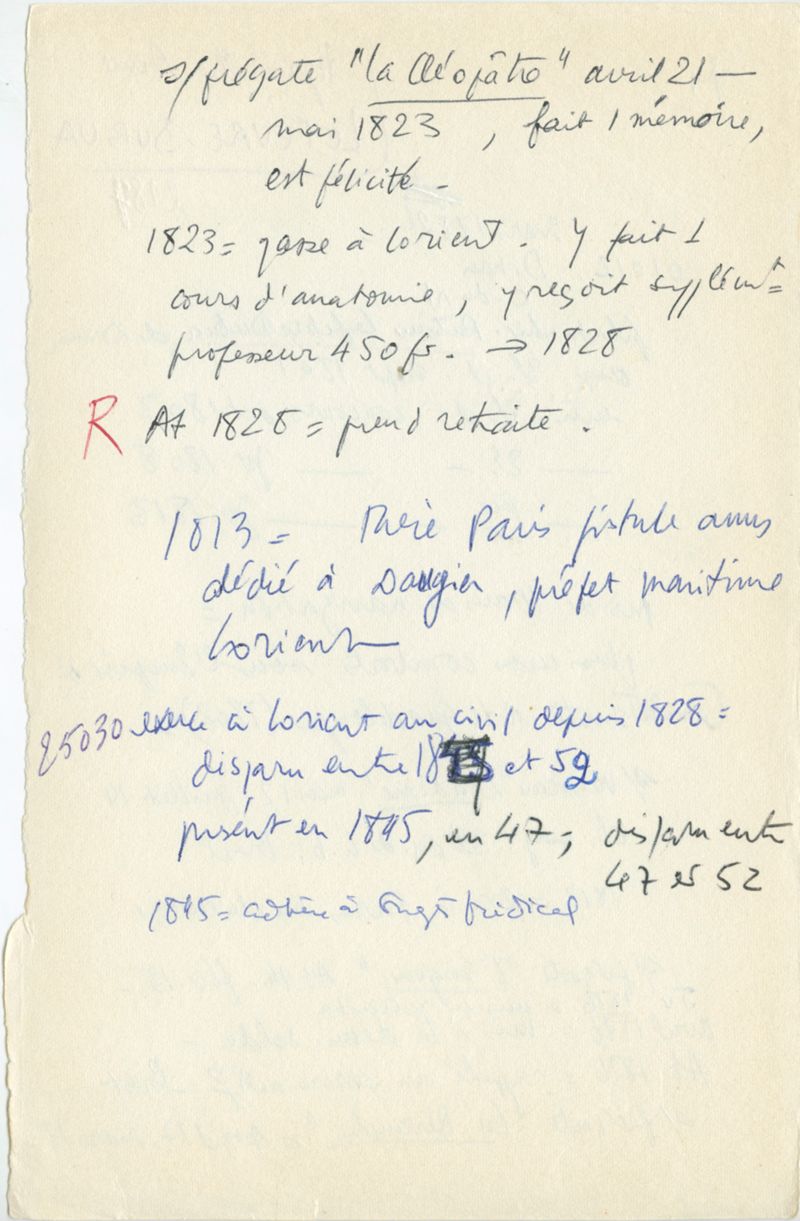 s/frégate "la Cléopâtre" avril 21 —
mai 1823, fait 1 mémoire,
est félicité -
1823 = passe à Lorient. Y fait 1
cours d'anatomie, y reçoit supplémt =
professeur 450 fr. → 1828
R At 1828 = prend retraite.
1813 = Thèse Paris fistule anus
dédié à Daugier, préfet maritime
Lorient
25030 exerce à Lorient au civil depuis 1828 =
disparu entre 18 et 52
présent en 1845, en 47; disparu entre
47 et 52
1845 = adhère à Congrès Médical